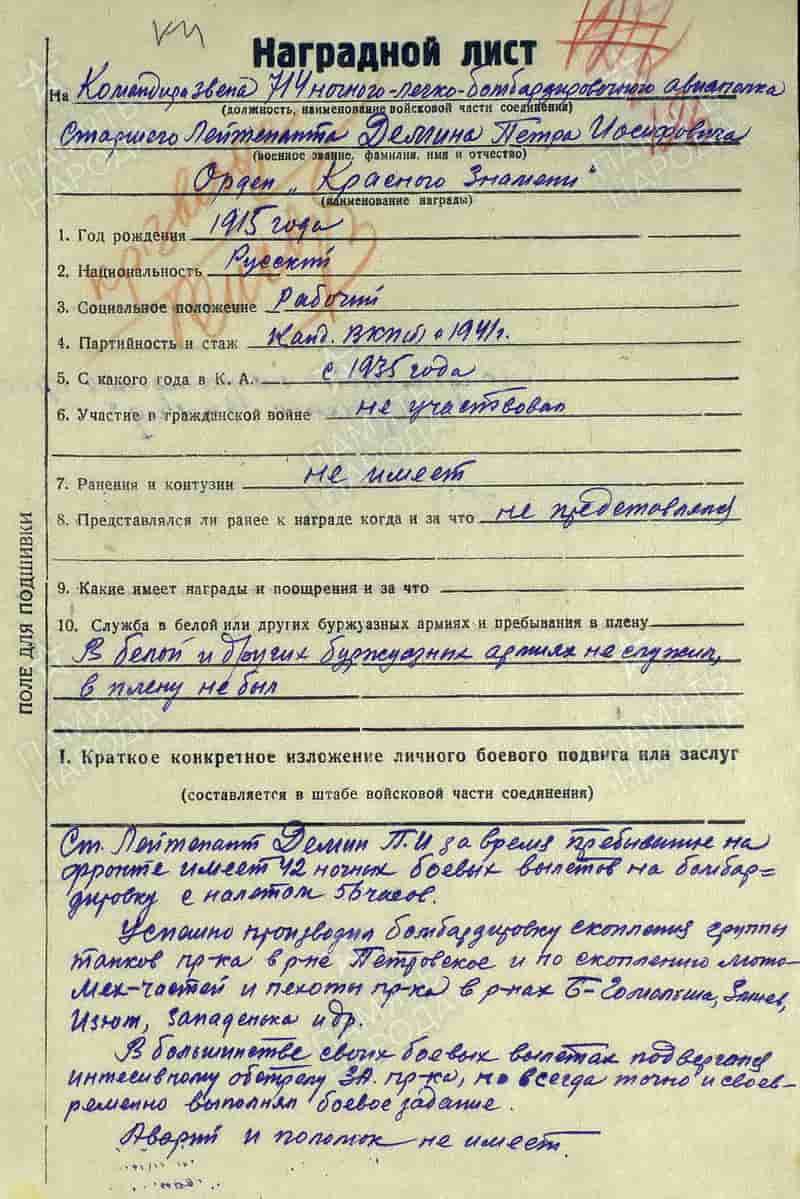 Наградной лист
На Командира звена 714 ночного-легко-бомбардировочного авиаполка
(должность, наименование войсковой части соединения)
Старшего Лейтенанта Демина Петра Иосифовича
(военное звание, фамилия, имя и отчество)
Орден „Красного Знамени"
(наименование награды)
1. Год рождения 1915 года
2. Национальность Русский
3. Социальное положение Рабочий
4. Партийность и стаж Канд. ВКП(б) с 1941г.
5. С какого года в К. А. с 1935 года
6. Участие в гражданской войне не участвовал
7. Ранения и контузии не имеет
8. Представлялся ли ранее к награде когда и за что не представлялся
9. Какие имеет награды и поощрения и за что
10. Служба в белой или других буржуазных армиях и пребывания в плену
В белой и других буржуазных армиях не служил,
в плену не был
ПОЛЕ ДЛЯ ПОДШИВКИ
I. Краткое конкретное изложение личного боевого подвига или заслуг
(составляется в штабе войсковой части соединения)
Ст. Лейтенант Демин П.И за время пребывание на
фронте имеет 42 ночных боевых вылетов на бомбар=
дировку с налетом 56 часов.
Успешно производил бомбардировку скопления группы
танков пр-ка в р-не Петровское и по скоплению мото-
мех-частей и пехоты пр-ка в р-нах Б-Гомольша, Змиев,
Изюм, Западенька и др.
В большинстве своих боевых вылетах подвергался
интесивному обстрелу ЗА. пр-ка, но всегда точно и своев-
ременно выполнял боевое задание.
Аварий и поломок не имеет.
ПАМЯТЬ НАРОДА